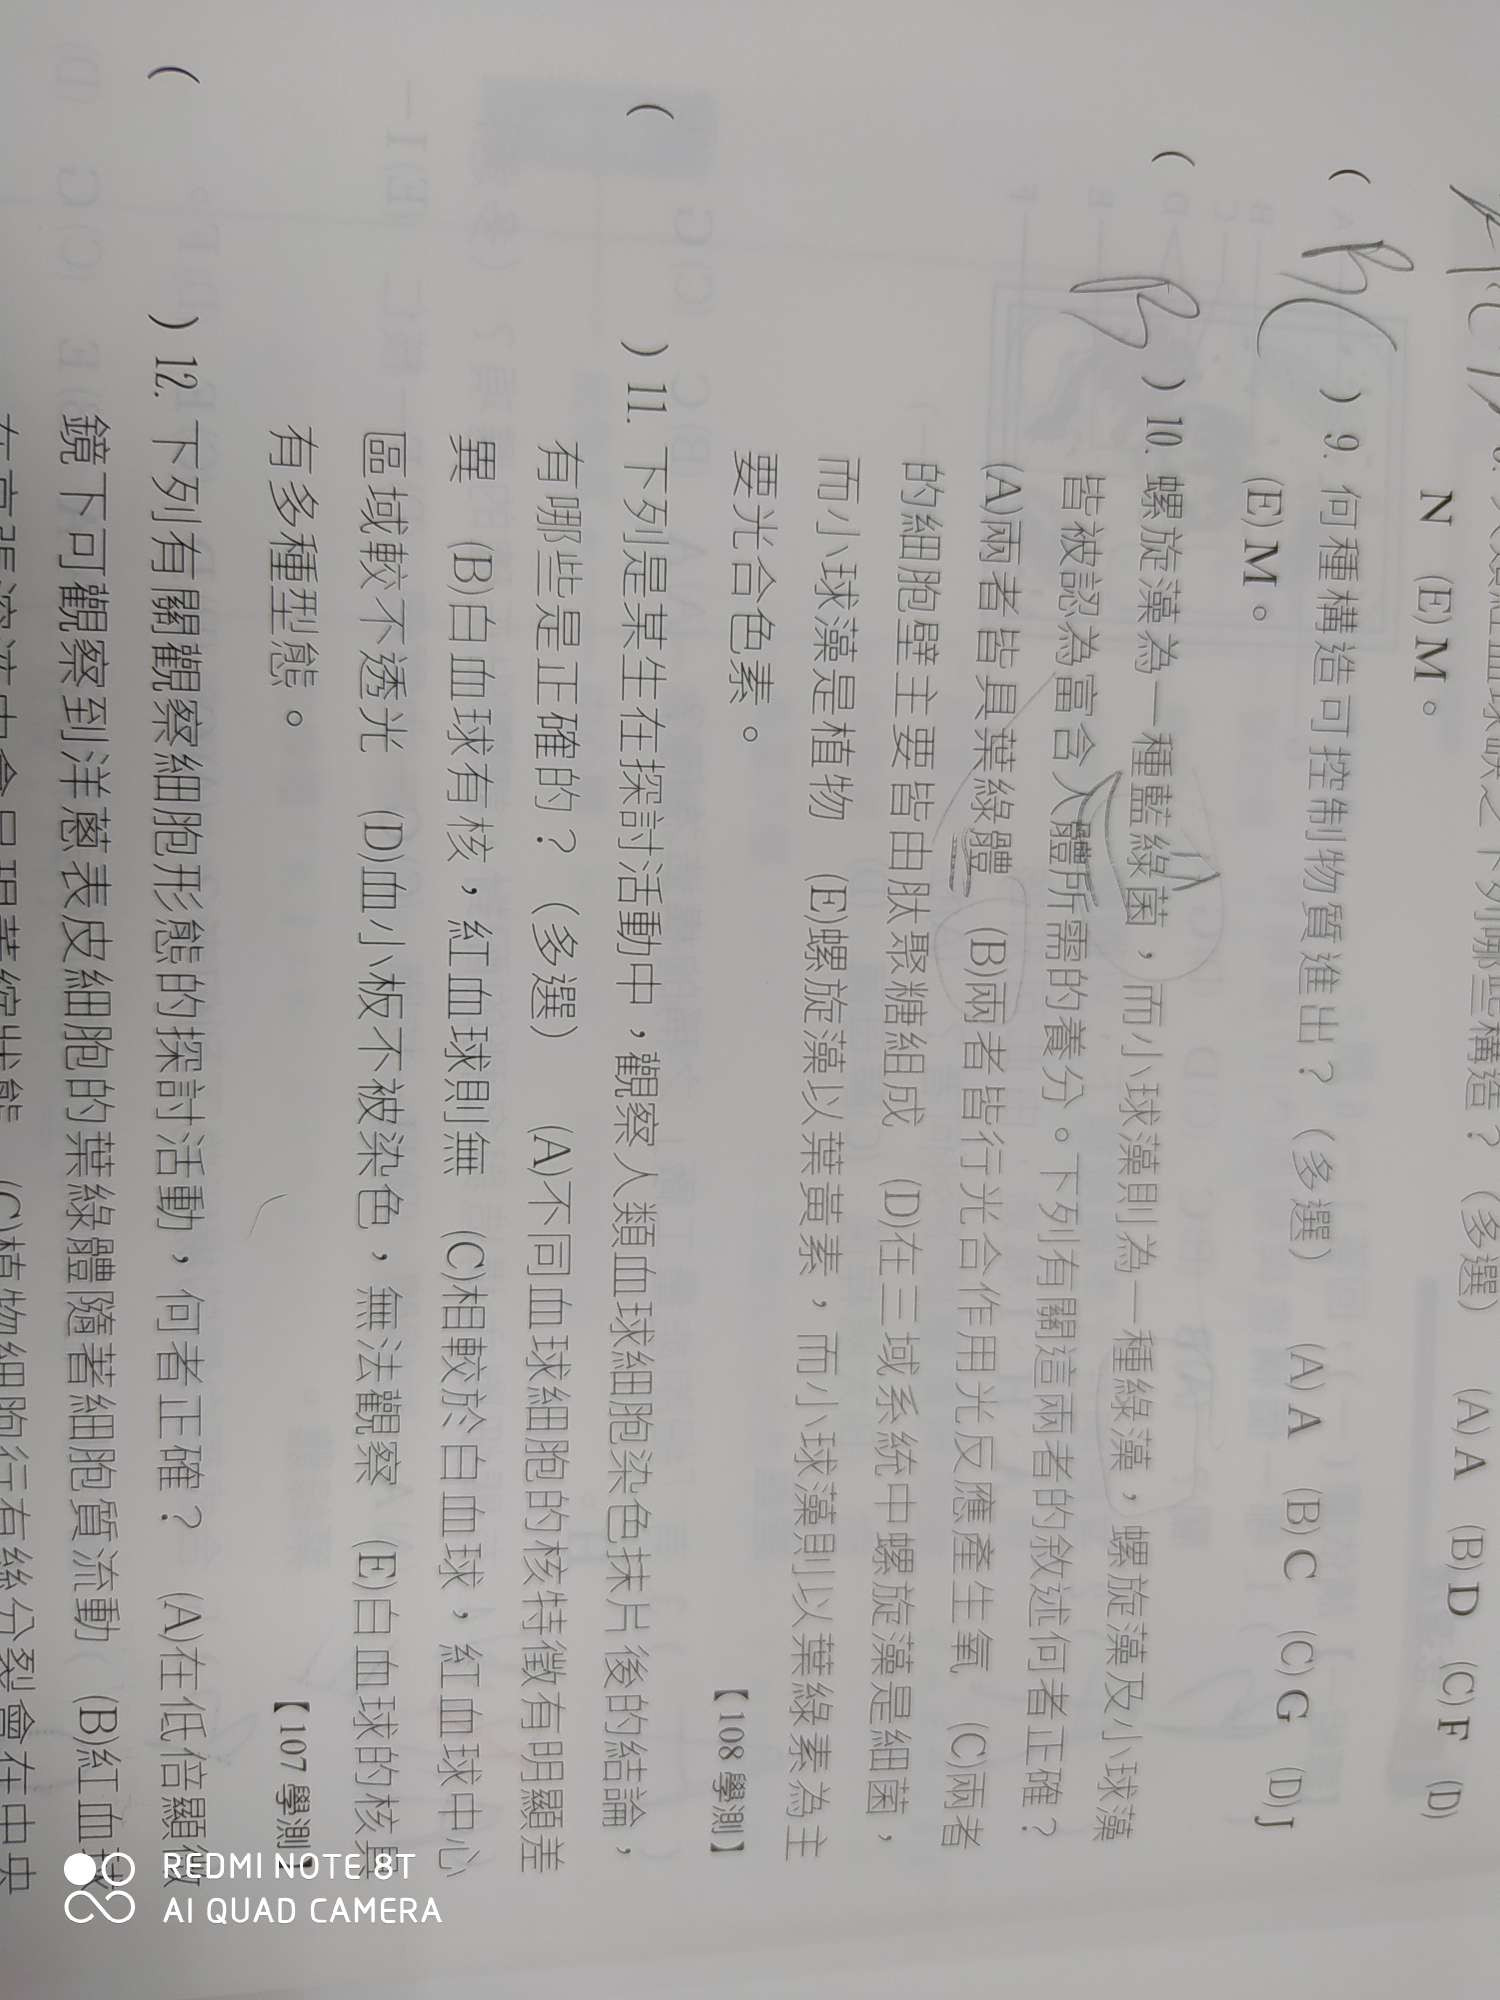 N (E) M。
(A) A (B) D (C) F (D)
( BC ) 9. 何種構造可控制物質進出？（多選） (A) A (B) C (C) G (D) J
(E) M。
( B ) 10. 螺旋藻為一種藍綠菌，而小球藻則為一種綠藻，螺旋藻及小球藻
皆被認為富含人體所需的養分。下列有關這兩者的敘述何者正確？
(A)兩者皆具葉綠體 (B)兩者皆行光合作用光反應產生氧 (C)兩者
的細胞壁主要皆由肽聚糖組成 (D)在三域系統中螺旋藻是細菌，
而小球藻是植物 (E)螺旋藻以葉黃素，而小球藻則以葉綠素為主
要光合色素。 【108 學測】
( ) 11. 下列是某生在探討活動中，觀察人類血球細胞染色抹片後的結論，
有哪些是正確的？（多選） (A)不同血球細胞的核特徵有明顯差
異 (B)白血球有核，紅血球則無 (C)相較於白血球，紅血球中心
區域較不透光 (D)血小板不被染色，無法觀察 (E)白血球的核具
有多種型態。 【107 學測】
( ) 12. 下列有關觀察細胞形態的探討活動，何者正確？ (A)在低倍顯微
鏡下可觀察到洋蔥表皮細胞的葉綠體隨著細胞質流動 (B)紅血球
(C)植物細胞行有絲分裂會在中央
REDMI NOTE 8T
AI QUAD CAMERA